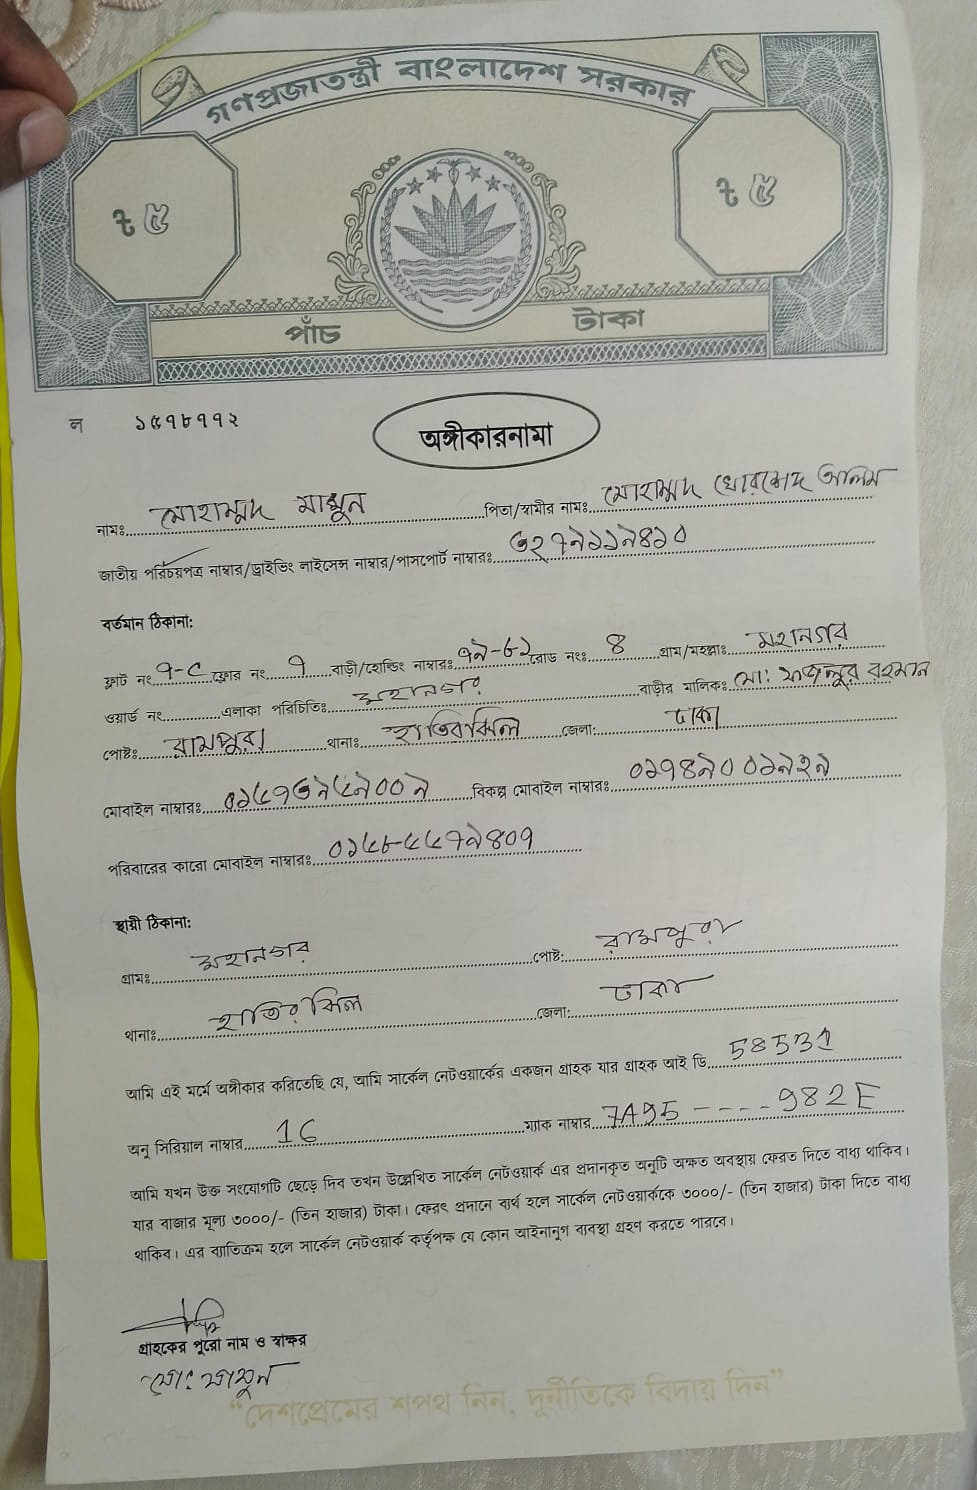 গণপ্রজাতন্ত্রী বাংলাদেশ সরকার
৳ ৫ ৳ ৫
পাঁচ টাকা
ন ১৫৭৮৭৭২
অঙ্গীকারনামা
নামঃ মোহাম্মদ মামুন পিতা/স্বামীর নামঃ মোহাম্মদ খোরশেদ আলম
জাতীয় পরিচয়পত্র নাম্বার/ড্রাইভিং লাইসেন্স নাম্বার/পাসপোর্ট নাম্বারঃ ৩২৭৯১১৯৪১০
বর্তমান ঠিকানা:
ফ্লাট নং ৭-C ফ্লোর নং ৭ বাড়ী/হোল্ডিং নাম্বারঃ ৭৯-৮২ রোড নংঃ ৪ গ্রাম/মহল্লাঃ মহানগর
ওয়ার্ড নং এলাকা পরিচিতিঃ মহানগর বাড়ীর মালিকঃ মো: ফজলুর রহমান
পোষ্টঃ রামপুরা থানাঃ হাতিরঝিল জেলা: ঢাকা
মোবাইল নাম্বারঃ ০১৫৭৬৯৫৯০০৯ বিকল্প মোবাইল নাম্বারঃ ০১৭৪৯০০১৯২৯
পরিবারের কারো মোবাইল নাম্বারঃ ০১৫৮৫৫৭৯৪০৭
স্থায়ী ঠিকানা:
গ্রামঃ মহানগর পোষ্ট: রামপুরা
থানাঃ হাতিরঝিল জেলা: ঢাকা
আমি এই মর্মে অঙ্গীকার করিতেছি যে, আমি সার্কেল নেটওয়ার্কের একজন গ্রাহক যার গ্রাহক আই ডি 58531
অনু সিরিয়াল নাম্বার 16 ম্যাক নাম্বার 7A95 ---- 982E
আমি যখন উক্ত সংযোগটি ছেড়ে দিব তখন উল্লেখিত সার্কেল নেটওয়ার্ক এর প্রদানকৃত অনুটি অক্ষত অবস্থায় ফেরত দিতে বাধ্য থাকিব।
যার বাজার মূল্য ৩০০০/- (তিন হাজার) টাকা। ফেরৎ প্রদানে ব্যর্থ হলে সার্কেল নেটওয়ার্ককে ৩০০০/- (তিন হাজার) টাকা দিতে বাধ্য
থাকিব। এর ব্যতিক্রম হলে সার্কেল নেটওয়ার্ক কর্তৃপক্ষ যে কোন আইনানুগ ব্যবস্থা গ্রহণ করতে পারবে।
গ্রাহকের পুরো নাম ও স্বাক্ষর
মো: মামুন
“দেশপ্রেমের শপথ নিন, দুর্নীতিকে বিদায় দিন”